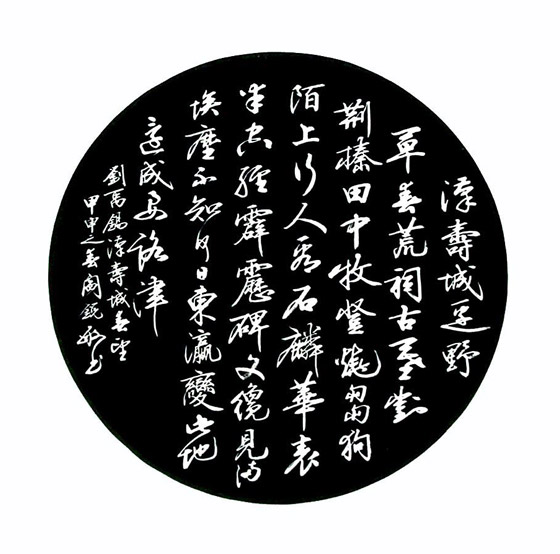 漢壽城邊野
草春荒祠古墓對
荆榛田中牧豎燒芻狗
陌上行人看石麟華表
半空經霹靂碑文纔見滿
埃塵不知何日東瀛變此地
還成要路津
劉禹錫漢壽城春望
甲申之春閻銳敏书